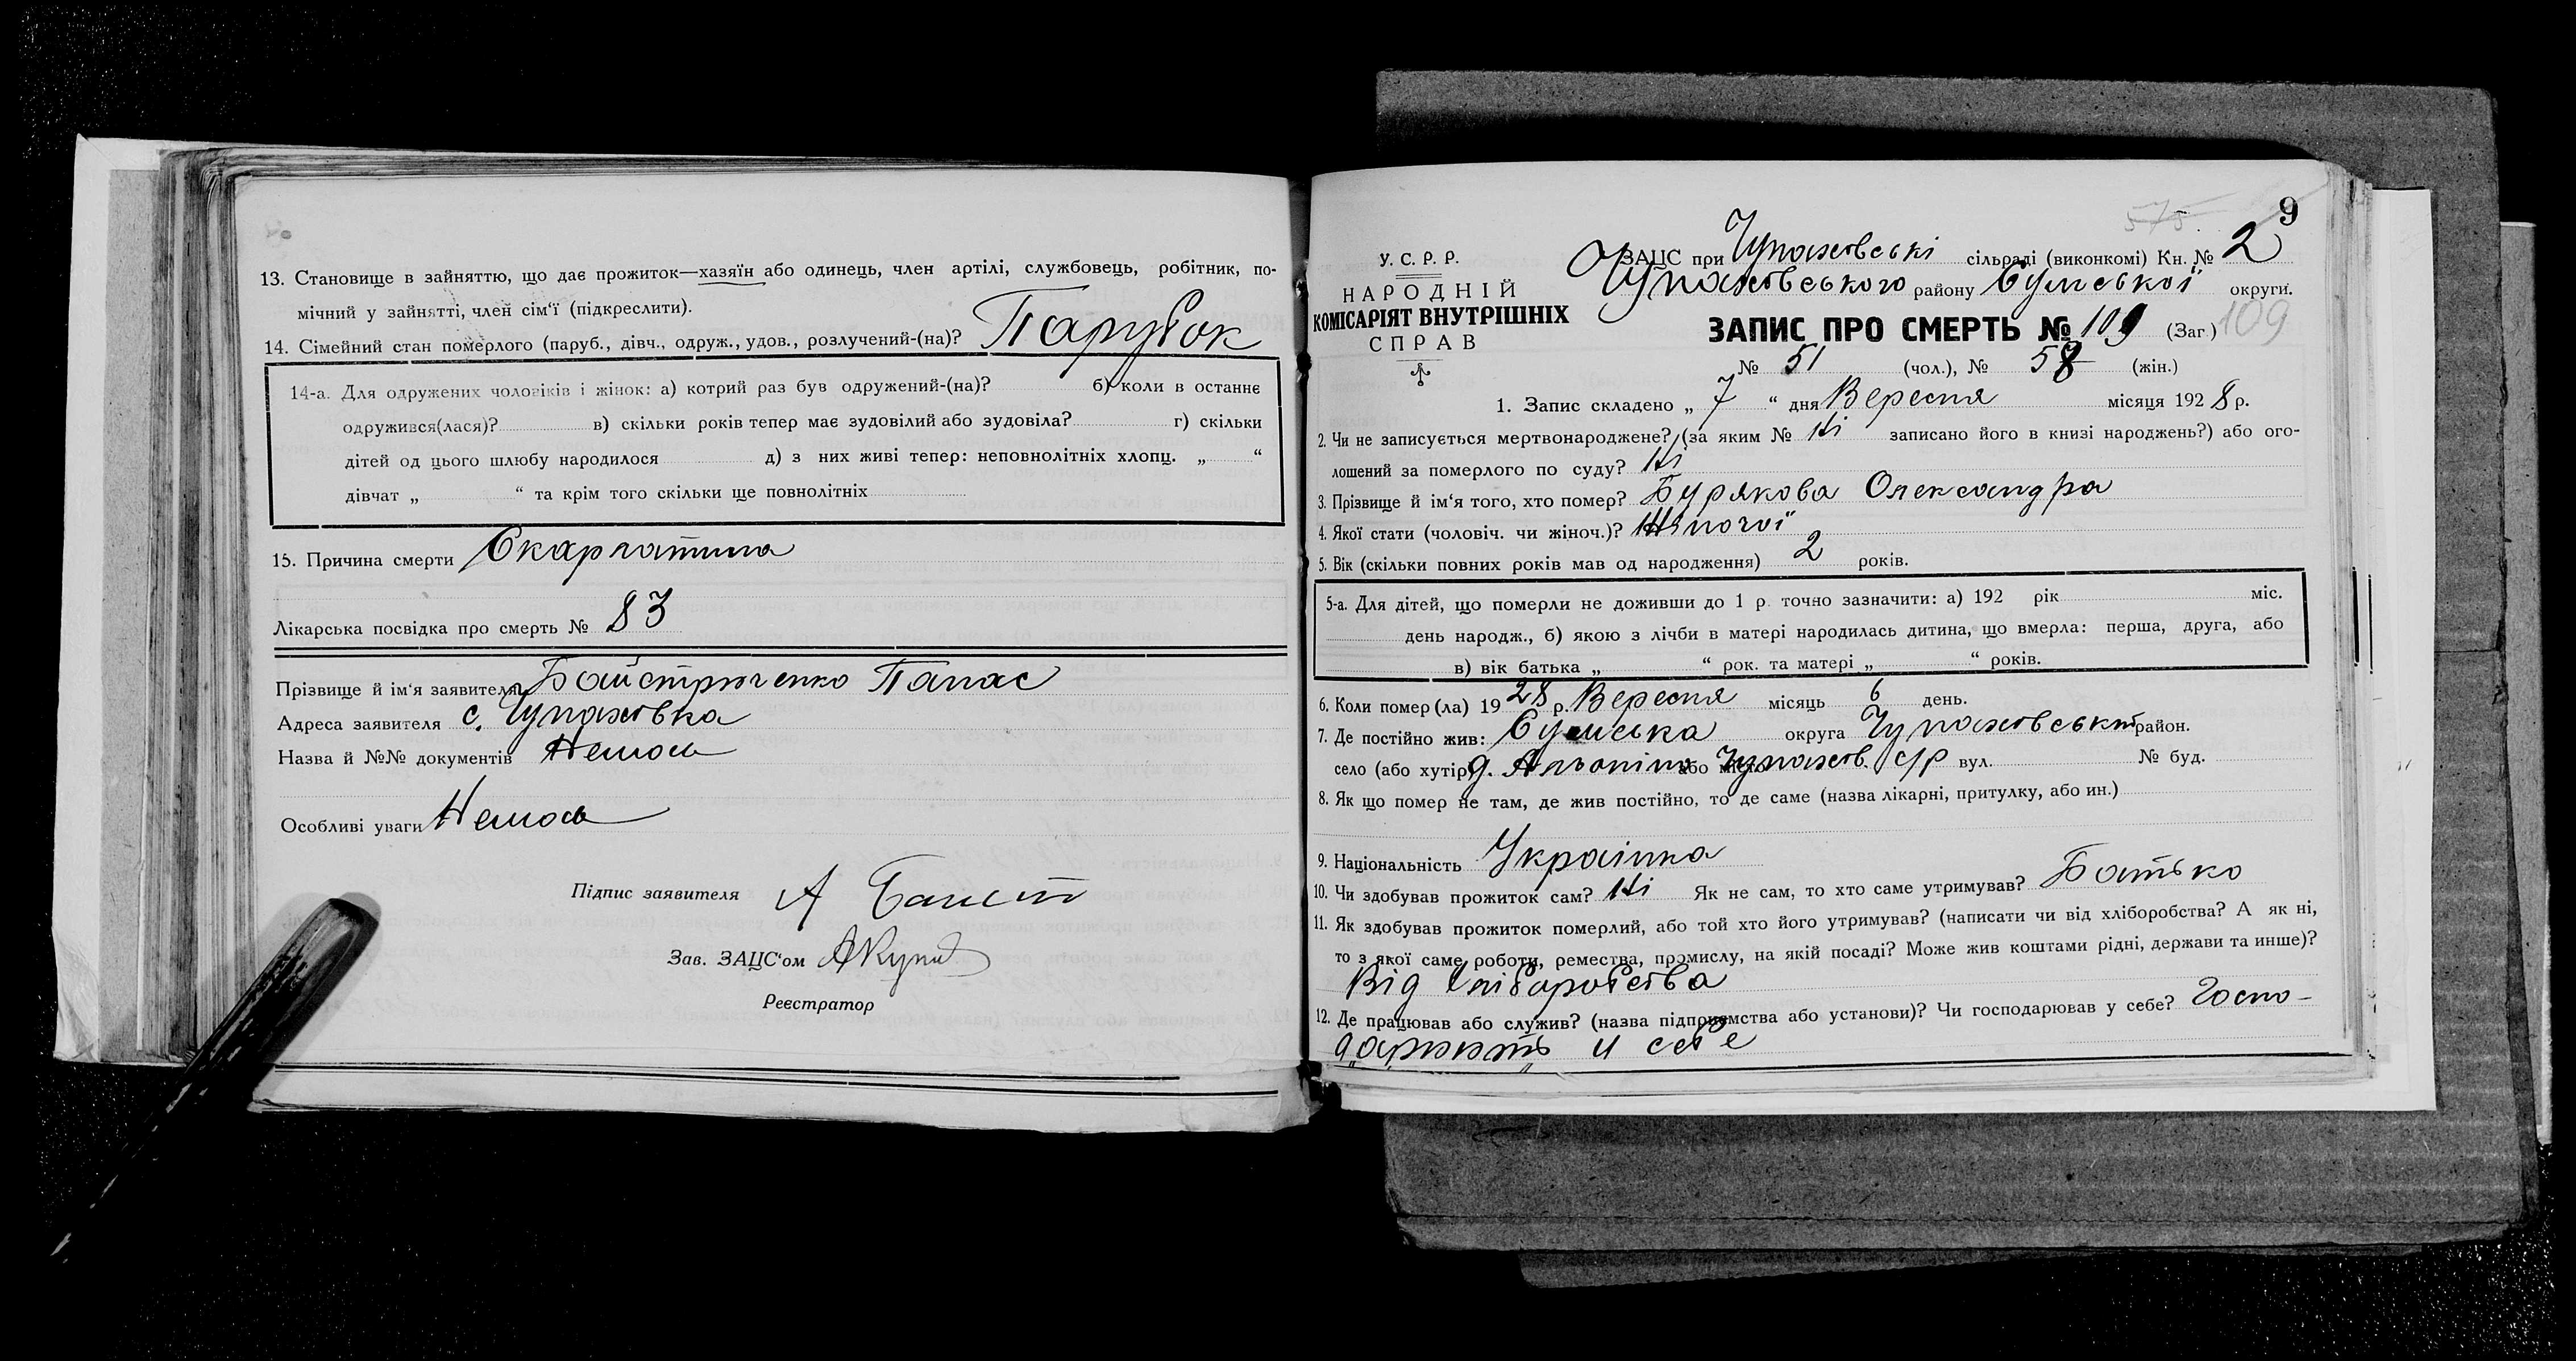 13. Становище в зайняттю, що дає прожиток—хазяїн або одинець, член артілі, службовець, робітник, по-
мічний у зайнятті, член сім'ї (підкреслити).
14. Сімейний стан померлого (паруб., дівч., одруж., удов., розлучений-(на)? Парубок
14-а. Для одружених чоловіків і жінок: а) котрий раз був одружений-(на)? б) коли в останнє
одружився(лася)? в) скільки років тепер має зудовілий або зудовіла? г) скільки
дітей од цього шлюбу народилося д) з них живі тепер: неповнолітніх хлопц. „ “
дівчат „ “ та крім того скільки ще повнолітніх
15. Причина смерти Скарлатина
Лікарська посвідка про смерть № 83
Прізвище й ім'я заявителя Байстрюченко Панас
Адреса заявителя с. Чупахівка
Назва й №№ документів Немає
Особливі уваги Немає
Підпис заявителя А
Зав. ЗАЦС'ом
Реєстратор
575
9
У. С. Р. Р.
НАРОДНІЙ
КОМІСАРІЯТ ВНУТРІШНІХ
СПРАВ
ЗАЦС при Чупахівські сільраді (виконкомі) Кн. № 2
Чупахівського району Сумської округи.
ЗАПИС ПРО СМЕРТЬ № 109 (Заг.) 109
№ 51 (чол.), № 58 (жін.)
1. Запис складено „ 7 “ дня Вересня місяця 1928 р.
2. Чи не записується мертвонароджене? (за яким № Ні записано його в книзі народжень?) або ого-
лошений за померлого по суду? Ні
3. Прізвище й ім'я того, хто помер? Бурякова Олександра
4. Якої стати (чоловіч. чи жіноч.)? Жіночої
5. Вік (скільки повних років мав од народження) 2 років.
5-а. Для дітей, що померли не доживши до 1 р. точно зазначити: а) 192 рік міс.
день народж., б) якою з лічби в матері народилась дитина, що вмерла: перша, друга, або
в) вік батька „ “ рок. та матері „ “ років.
6. Коли помер(ла) 1928 р. Вересня місяць 6 день.
7. Де постійно жив: Сумська округа Чупахівський район.
село (або хутір) або місто Чупахів. с/р вул. № буд.
8. Як що помер не там, де жив постійно, то де саме (назва лікарні, притулку, або ин.)
9. Національність Українка
10. Чи здобував прожиток сам? Ні Як не сам, то хто саме утримував? Батько
11. Як здобував прожиток померлий, або той хто його утримував? (написати чи від хліборобства? А як ні,
то з якої саме роботи, ремества, промислу, на якій посаді? Може жив коштами рідні, держави та инше)?
Від хліборобства
12. Де працював або служив? (назва підприємства або установи)? Чи господарював у себе? Госпо-
дарюють у себе